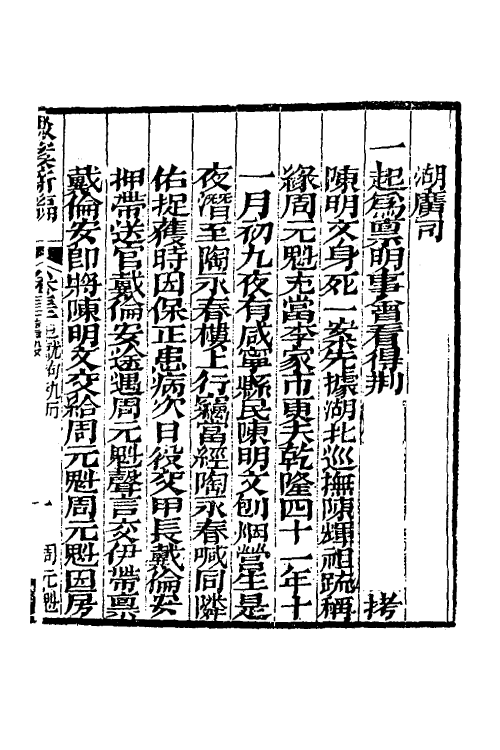 湖廣司
一起爲稟明事會看得荆　　拷
陳明文身死一案先據湖北巡撫陳輝祖疏稱
緣周元魁充當李家市東夫乾隆四十一年十
一月初九夜有咸寧縣民陳明文刨烟營生是
夜潛至陶永春樓上行竊當經陶永春喊同隣
佑捉獲時因保正患病次日後交甲長戴倫安
押帶送官戴倫安途遇周元魁聲言交伊帶稟
戴倫安卽將陳明文交給周元魁周元魁因房
駁案新編
一　周元魁